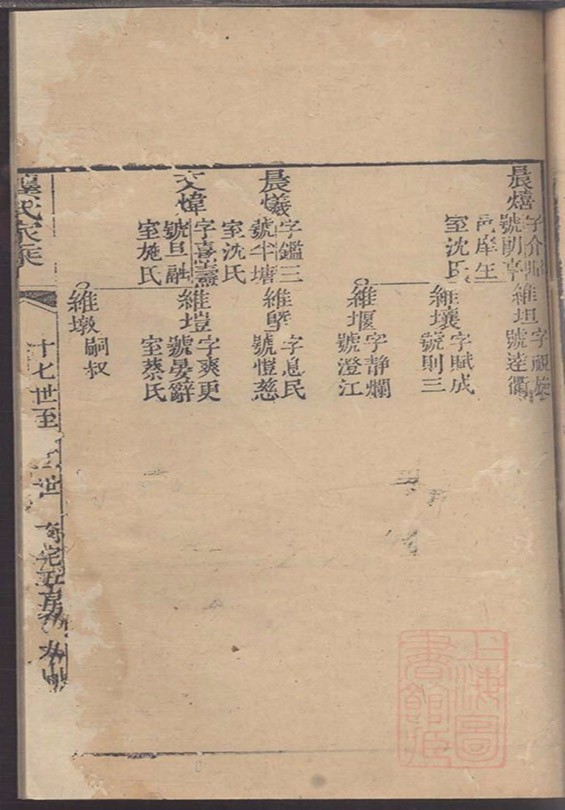 晨熺
字介
號
庠生
室沈氏
維坦
字
號逵衢
維壤
字賦成
號則三
維堰
字静爛
號澄江
晨爔
字鑑三
號半塘
室沈氏
維壁
字息民
號愷慈
文煒
字喜
號旦融
室施氏
維塏
字爽更
號晏辭
室蔡氏
維墩
嗣叔
氏家乗
十七世至
世
五房
上海圖書館藏